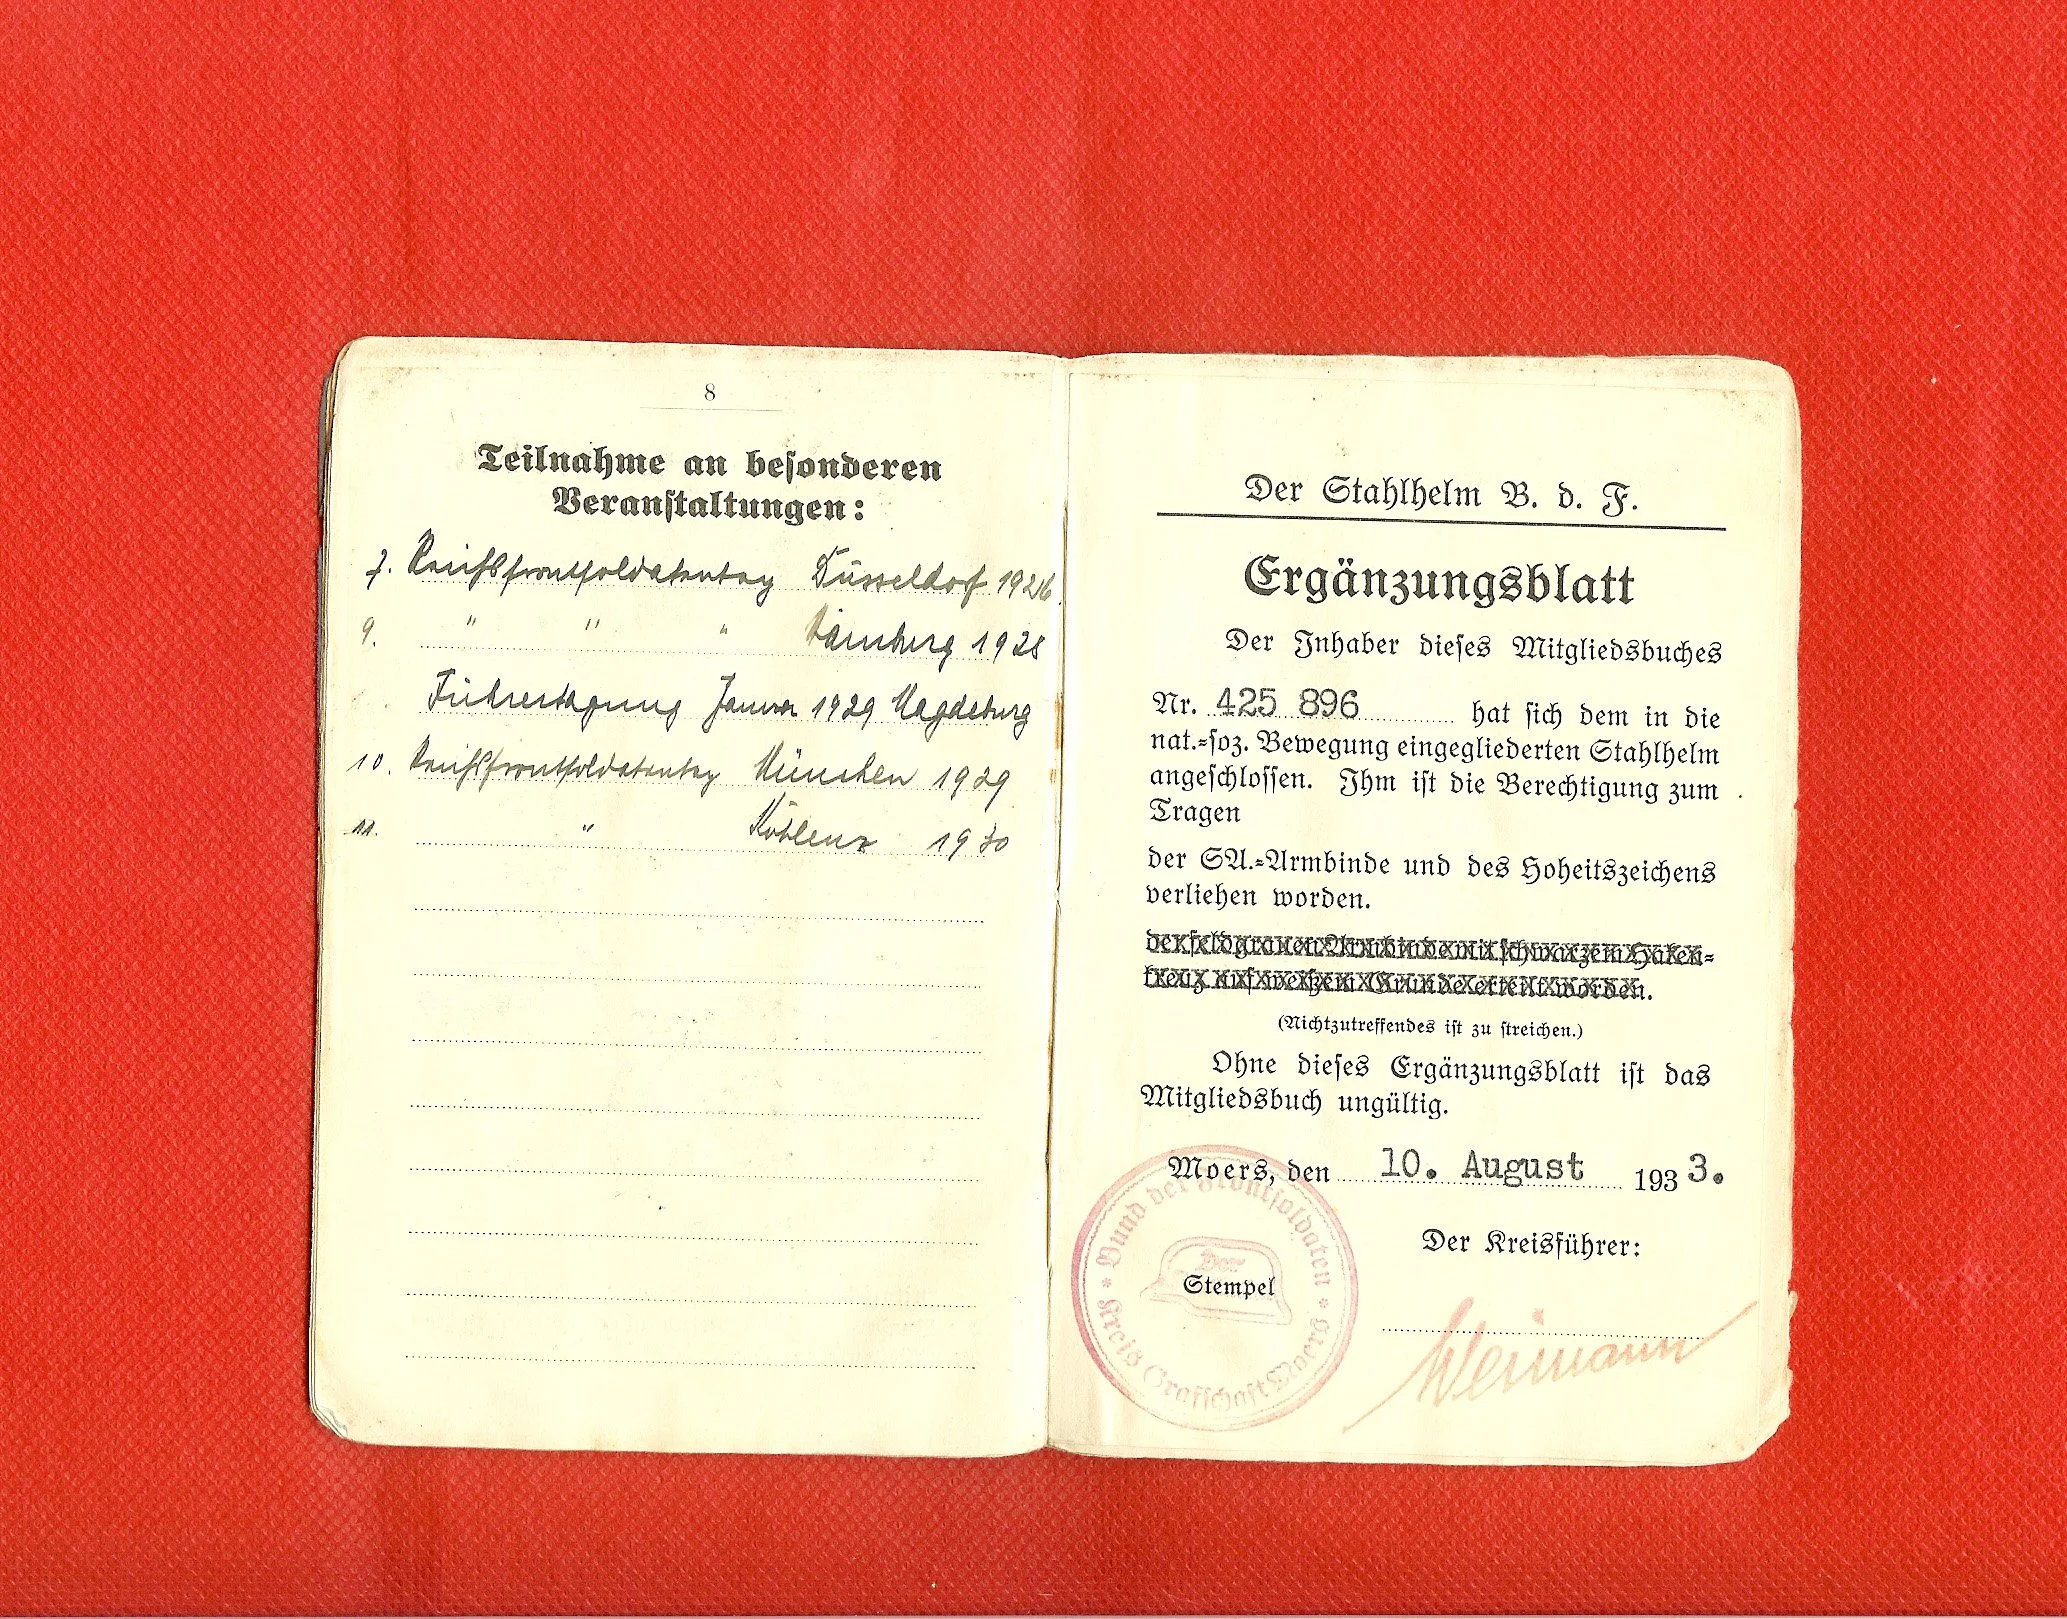 8
Teilnahme an besonderen
Veranstaltungen:
7. Reichsfrontsoldatentag Düsseldorf 1926
9. " " " Hamburg 1928
Führertagung Januar 1929 Magdeburg
10. Reichsfrontsoldatentag München 1929
11. " Koblenz 1930
Der Stahlhelm B. d. F.
Ergänzungsblatt
Der Inhaber dieses Mitgliedsbuches
Nr. 425 896 hat sich dem in die
nat.=soz. Bewegung eingegliederten Stahlhelm
angeschlossen. Ihm ist die Berechtigung zum
Tragen
der SA.=Armbinde und des Hoheitszeichens
verliehen worden.
der feldgrauen Armbinde mit schwarzem Haken=
kreuz auf weißem Grunde erteilt worden.
(Nichtzutreffendes ist zu streichen.)
Ohne dieses Ergänzungsblatt ist das
Mitgliedsbuch ungültig.
Moers, den 10. August 1933.
Der Kreisführer:
Stempel
Bund der Frontsoldaten
Der
Kreis Grafschaft Moers
Weimann